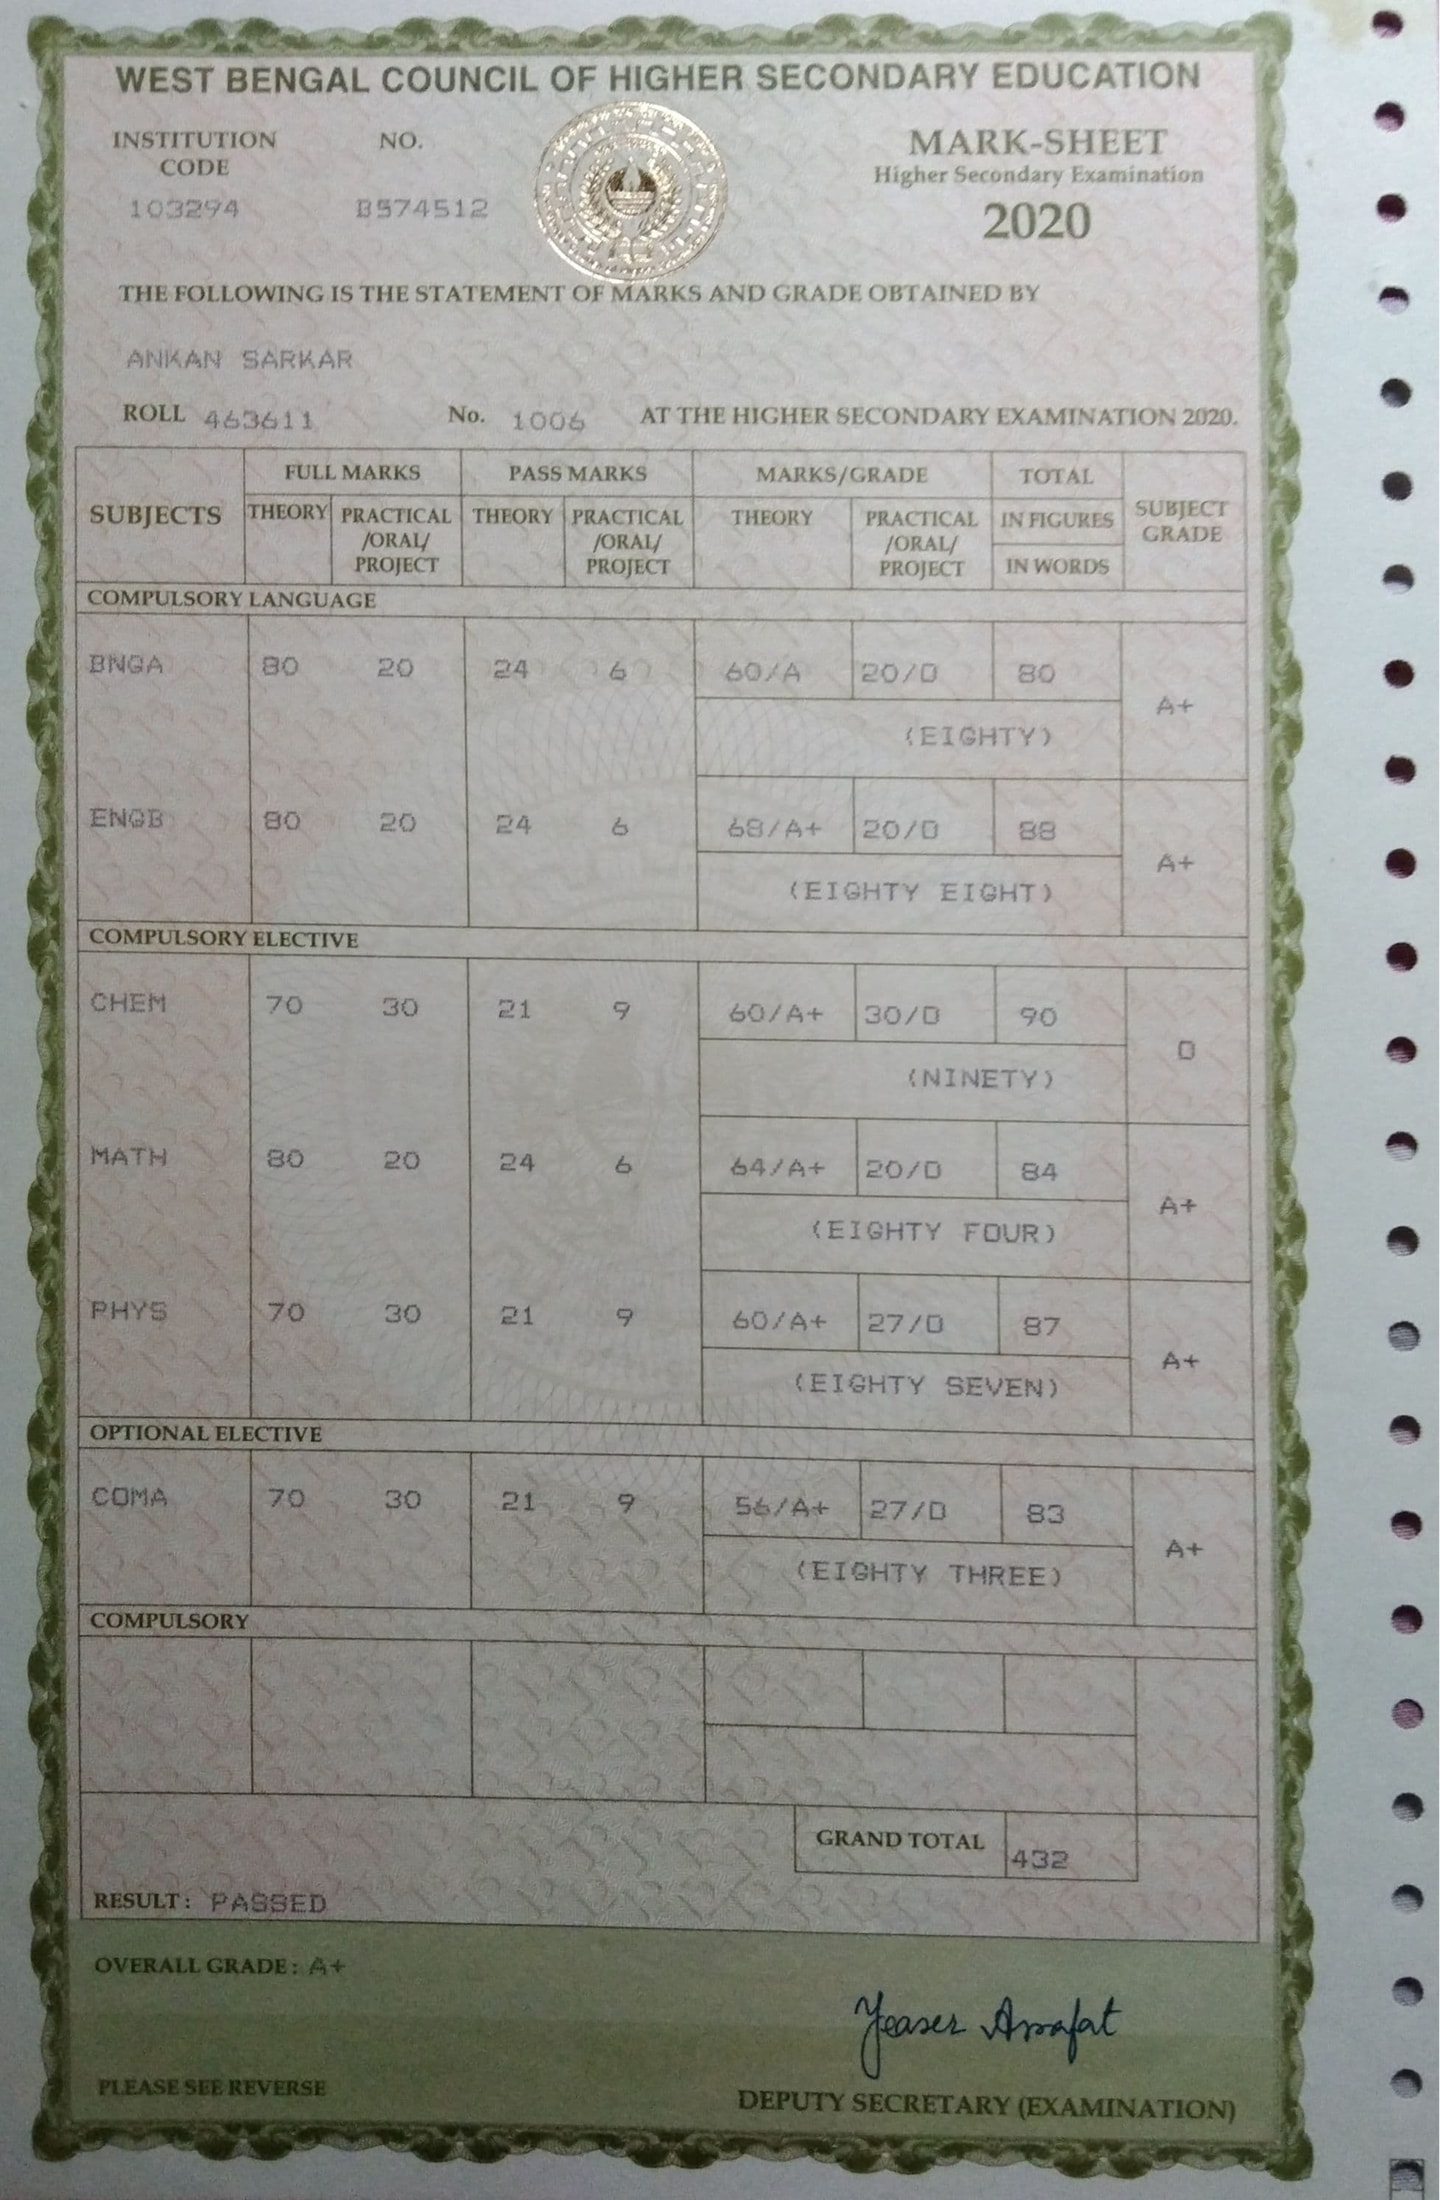 WEST BENGAL COUNCIL OF HIGHER SECONDARY EDUCATION
INSTITUTION CODE NO.
103294 B574512
MARK-SHEET
Higher Secondary Examination
2020
THE FOLLOWING IS THE STATEMENT OF MARKS AND GRADE OBTAINED BY
ANKAN SARKAR
ROLL 463611 No. 1006 AT THE HIGHER SECONDARY EXAMINATION 2020.
SUBJECTS FULL MARKS PASS MARKS MARKS/GRADE TOTAL SUBJECT GRADE
THEORY PRACTICAL /ORAL/ PROJECT THEORY PRACTICAL /ORAL/ PROJECT THEORY PRACTICAL /ORAL/ PROJECT IN FIGURES
IN WORDS
COMPULSORY LANGUAGE
BNGA 80 20 24 6 60/A 20/O 80 A+
(EIGHTY)
ENGB 80 20 24 6 68/A+ 20/O 88 A+
(EIGHTY EIGHT)
COMPULSORY ELECTIVE
CHEM 70 30 21 9 60/A+ 30/O 90 O
(NINETY)
MATH 80 20 24 6 64/A+ 20/O 84 A+
(EIGHTY FOUR)
PHYS 70 30 21 9 60/A+ 27/O 87 A+
(EIGHTY SEVEN)
OPTIONAL ELECTIVE
COMA 70 30 21 9 56/A+ 27/O 83 A+
(EIGHTY THREE)
COMPULSORY
GRAND TOTAL 432
RESULT : PASSED
OVERALL GRADE : A+
Yeaser Arrafat
PLEASE SEE REVERSE
DEPUTY SECRETARY (EXAMINATION)